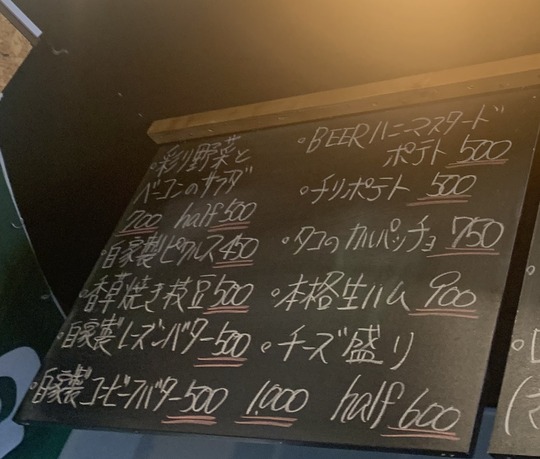 ・彩り野菜と
ベーコンのサラダ
700 half 500
・自家製ピクルス 450
・香草焼き枝豆 500
・自家製レーズンバター 500
・自家製コービーフバター 500
・BEERハニーマスタード
ポテト 500
・チリポテト 500
・タコのカルパッチョ 750
・本格生ハム 900
・チーズ盛り
1,000 half 600